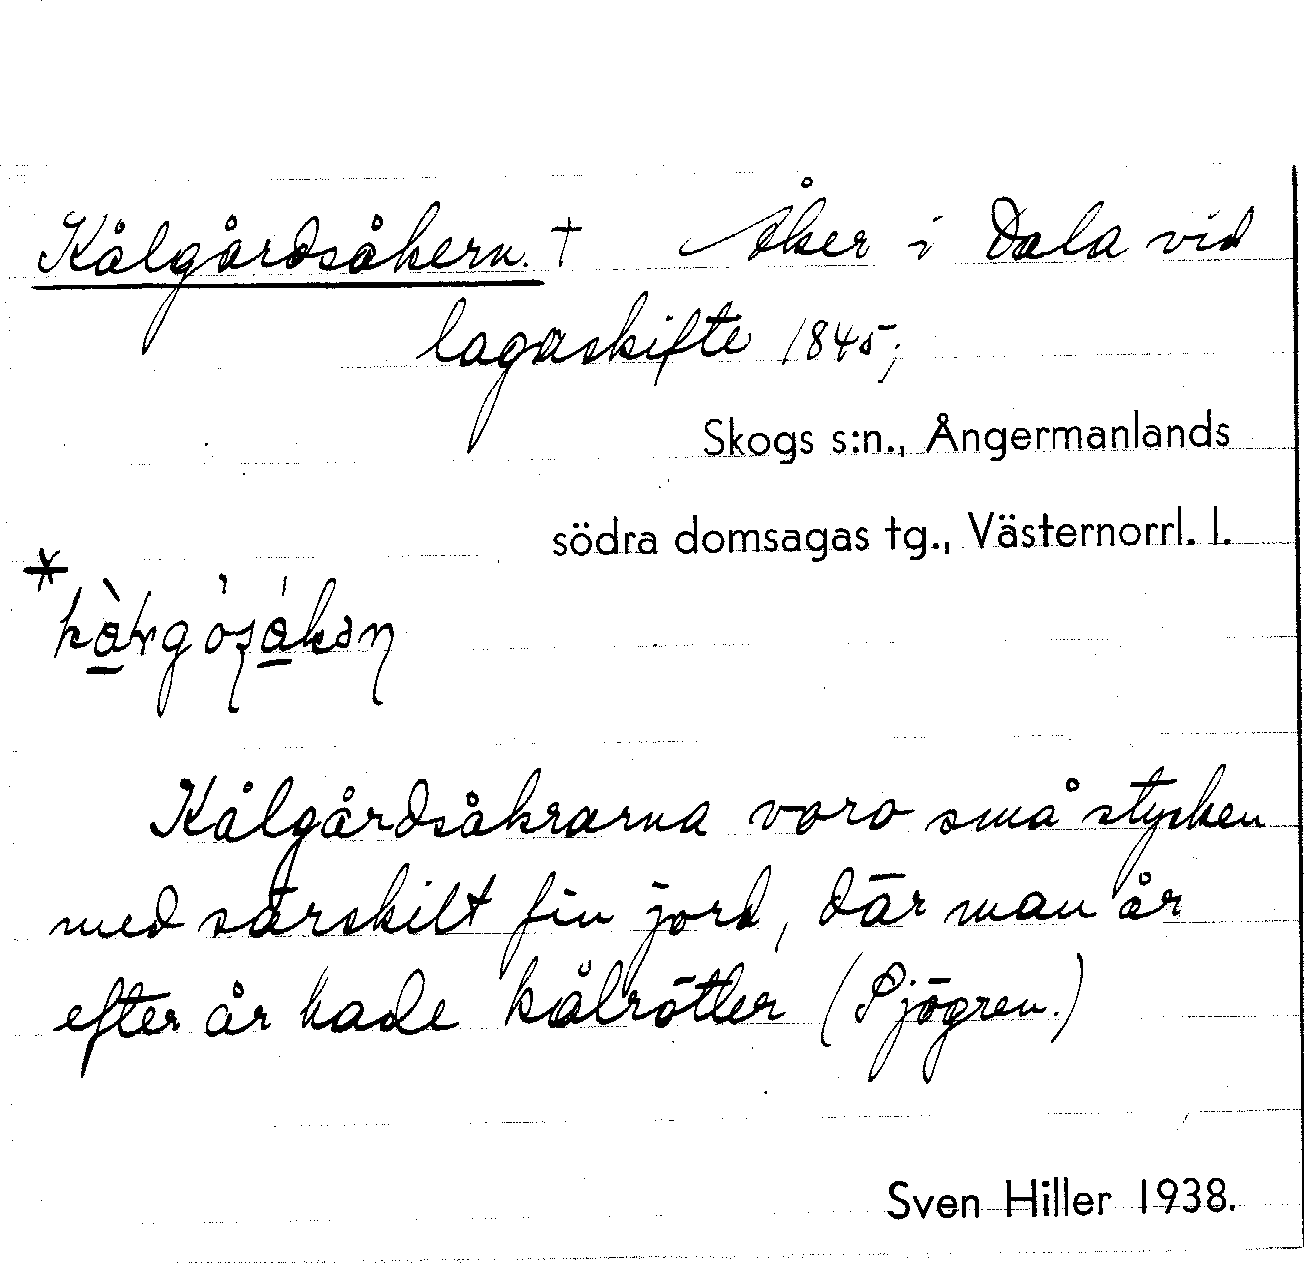 Kålgårdsåkern. † Åker i Dala vid
lagaskifte 1845;
Skogs s:n., Ångermanlands
södra domsagas tg., Västernorrl. l.
*
Kålgårdsåkrarna voro små stycken
med särskilt fin jord, där man år
efter år hade kålrötter (Sjögren.)
Sven Hiller 1938.